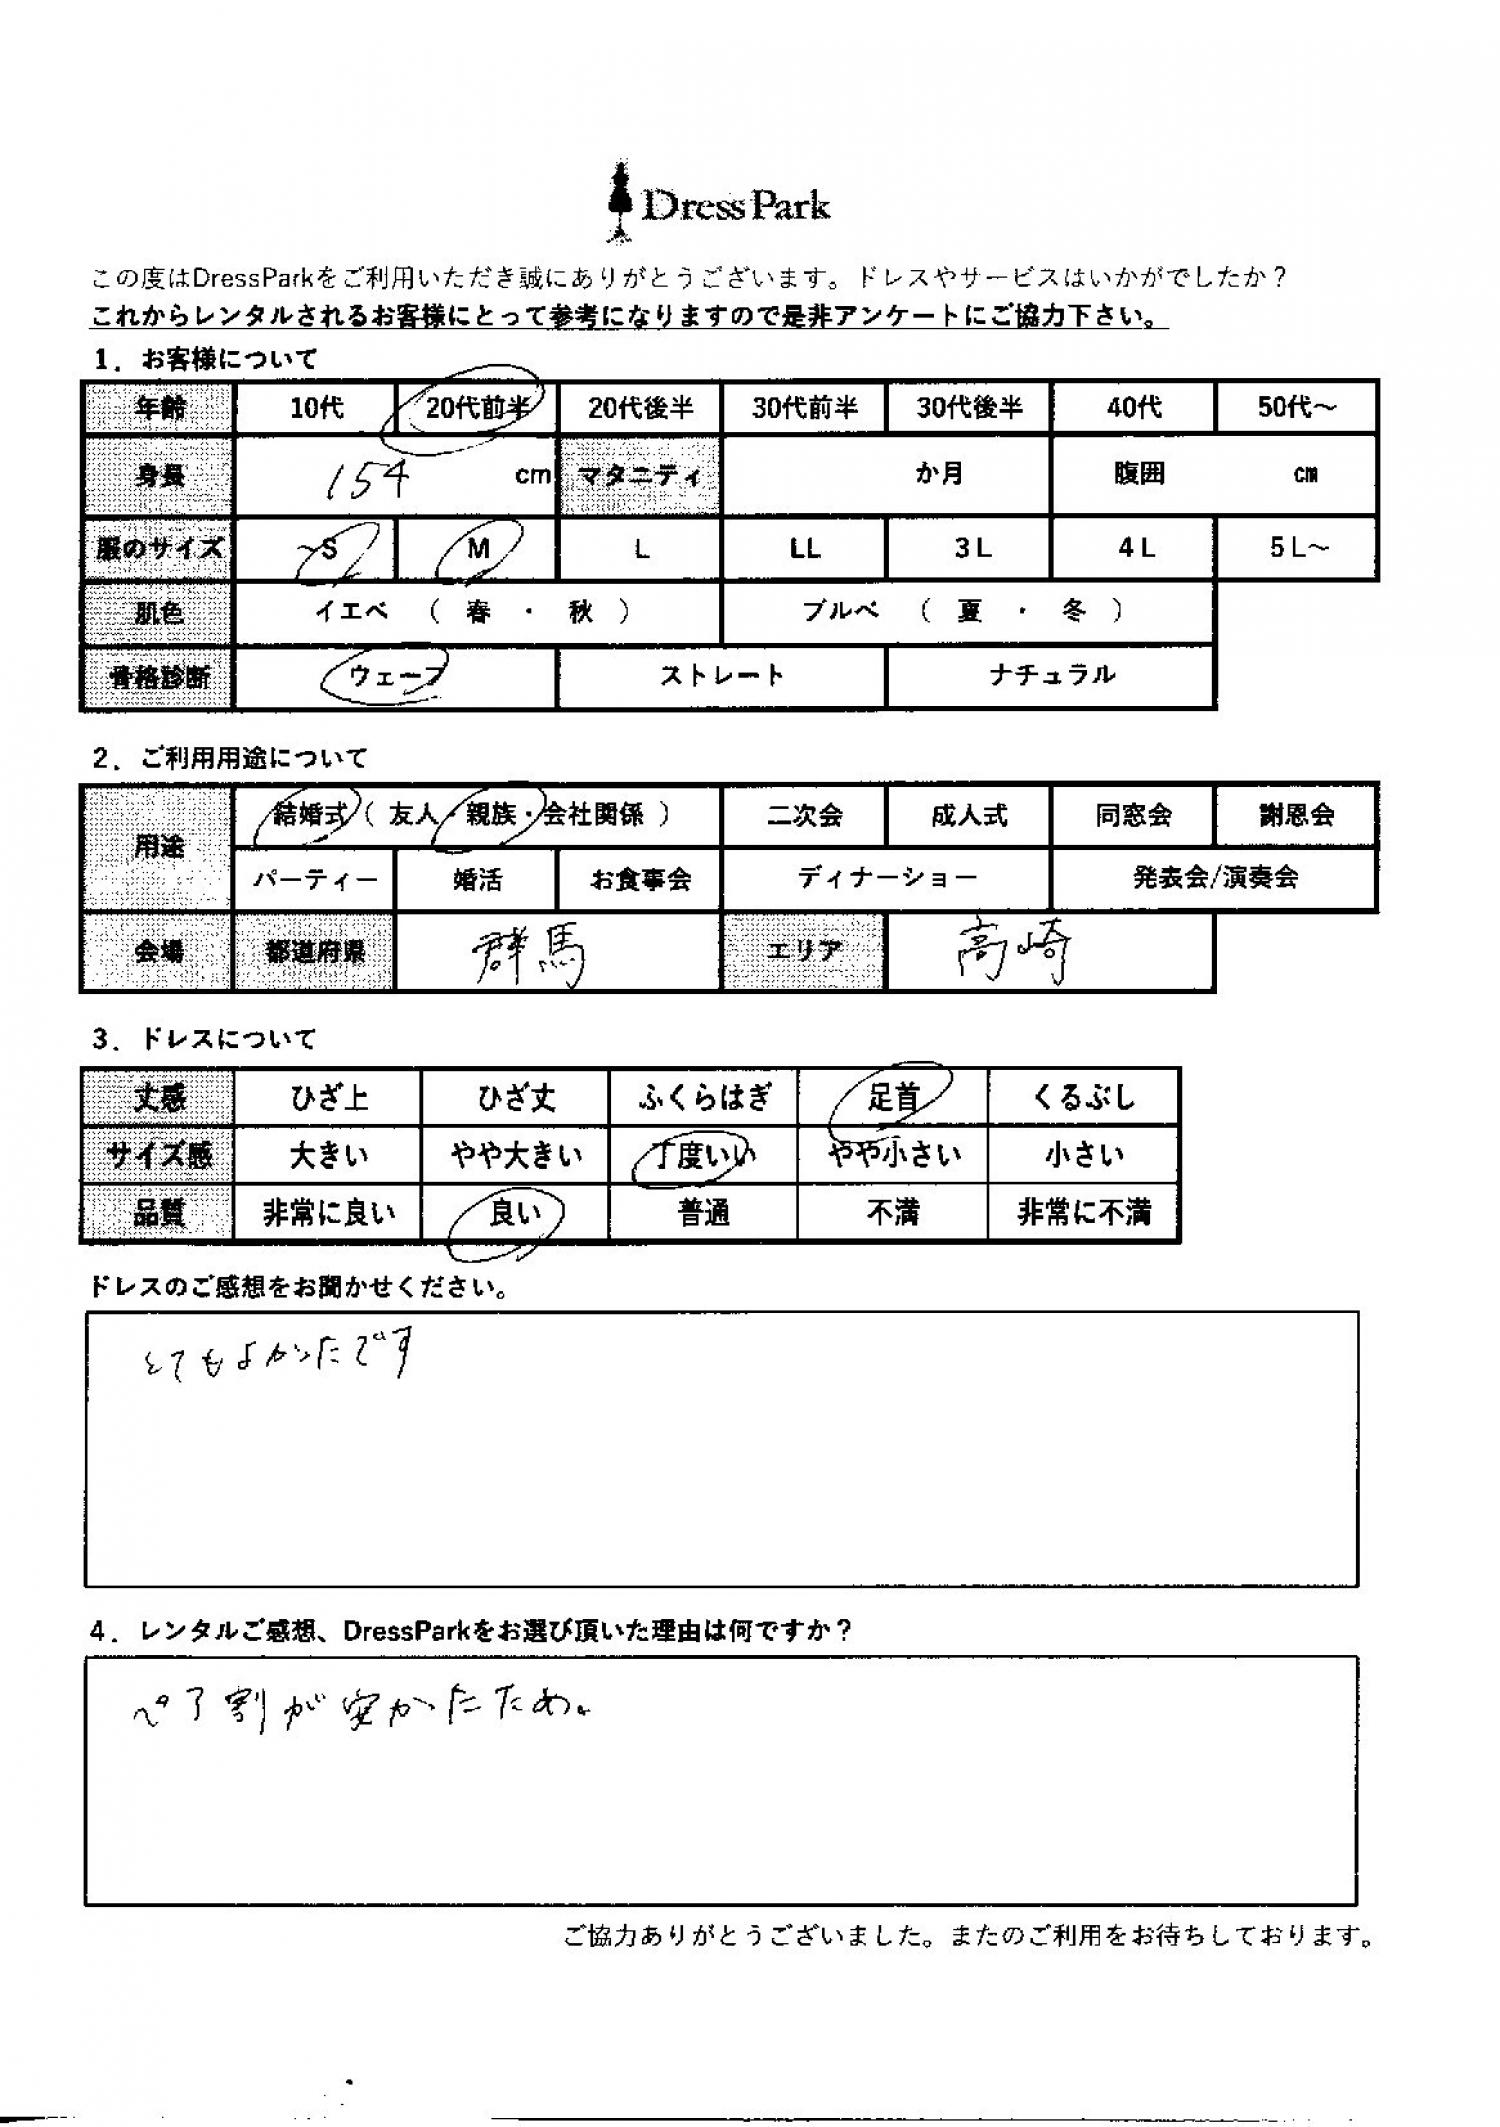 DressPark
この度はDressParkをご利用いただき誠にありがとうございます。ドレスやサービスはいかがでしたか？
これからレンタルされるお客様にとって参考になりますので是非アンケートにご協力下さい。
1．お客様について
年齢 10代 20代前半 20代後半 30代前半 30代後半 40代 50代～
身長 154 cm マタニティ か月 腹囲 cm
服のサイズ ~S M L LL 3L 4L 5L～
肌色 イエベ （ 春 ・ 秋 ） ブルベ （ 夏 ・ 冬 ）
骨格診断 ウェーブ ストレート ナチュラル
2．ご利用用途について
用途 結婚式（ 友人・親族・会社関係 ） 二次会 成人式 同窓会 謝恩会
パーティー 婚活 お食事会 ディナーショー 発表会/演奏会
会場 都道府県 群馬 エリア 高崎
3．ドレスについて
丈感 ひざ上 ひざ丈 ふくらはぎ 足首 くるぶし
サイズ感 大きい やや大きい 丁度いい やや小さい 小さい
品質 非常に良い 良い 普通 不満 非常に不満
ドレスのご感想をお聞かせください。
とてもよかったです
4．レンタルご感想、DressParkをお選び頂いた理由は何ですか？
ペア割が安かったため。
ご協力ありがとうございました。またのご利用をお待ちしております。